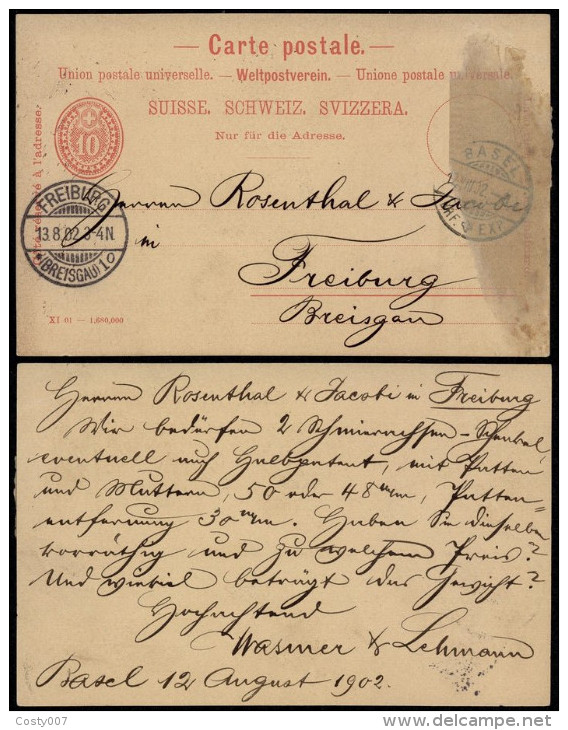 — Carte postale. —
Union postale universelle. — Weltpostverein. — Unione postale universale.
SUISSE. SCHWEIZ. SVIZZERA.
Nur für die Adresse.
à l'adresse.
10
FREIBURG
13.8.02 3-4N
(BREISGAU) 1
BASEL
EXP.
Herren Rosenthal & Jacobi
in
Freiburg
Breisgau
XI 01 — 1,680,000
Herren Rosenthal & Jacobi in Freiburg
Wir bedürfen 2 Schmierachsen-Schenkel,
eventuell auch Halbpatent, mit Patten
und Muttern, 50 oder 48 m/m, Patten=
entfernung 30 m/m. Haben Sie dieselben
vorräthig und zu welchem Preis?
Und wieviel beträgt das Gewicht?
Hochachtend
Wasmer & Lehmann
Basel 12 August 1902.
Costy007
delcampe.net